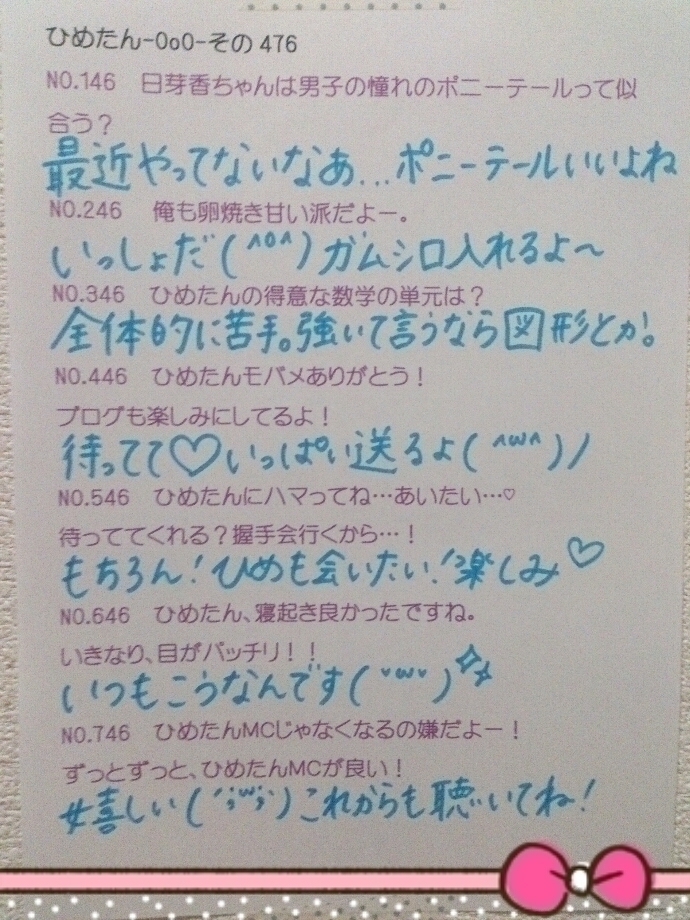 ひめたん-OoO-その476
NO.146　日芽香ちゃんは男子の憧れのポニーテールって似
合う？
最近やってないなあ...ポニーテールいいよね
NO.246　俺も卵焼き甘い派だよー。
いっしょだ(^o^)ガムシロ入れるよ～
NO.346　ひめたんの得意な数学の単元は？
全体的に苦手。強いて言うなら図形とか。
NO.446　ひめたんモバメありがとう！
ブログも楽しみにしてるよ！
待ってて♡いっぱい送るよ(^ω^)ノ
NO.546　ひめたんにハマってね…あいたい…♡
待っててくれる？握手会行くから…！
もちろん！ひめも会いたい！楽しみ♡
NO.646　ひめたん、寝起き良かったですね。
いきなり、目がパッチリ！！
いつもこうなんです(ˇωˇ)
NO.746　ひめたんMCじゃなくなるの嫌だよー！
ずっとずっと、ひめたんMCが良い！
嬉しい(´;ω;`)これからも聴いてね！